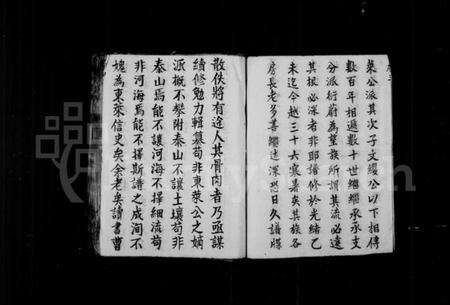 萊公派其次子文繆公以下相傳
數百年相遞數十世繼繼承承支
分派衍蔚為望族所謂其流必遠
其根必深者非耶譜修於光緒乙
未迄今越三十六裘葛矣其族各
房長老多善繼述深恐日久譜牒
散佚將有途人其骨肉者乃亟謀
續修勉力輯纂苟非東萊公之嫡
派概不攀附泰山不讓土壤苟非
泰山焉能不讓河海不擇細流苟
非河海焉能不擇斯譜之成洵不
媿為東萊信史矣余老矣讀書曹